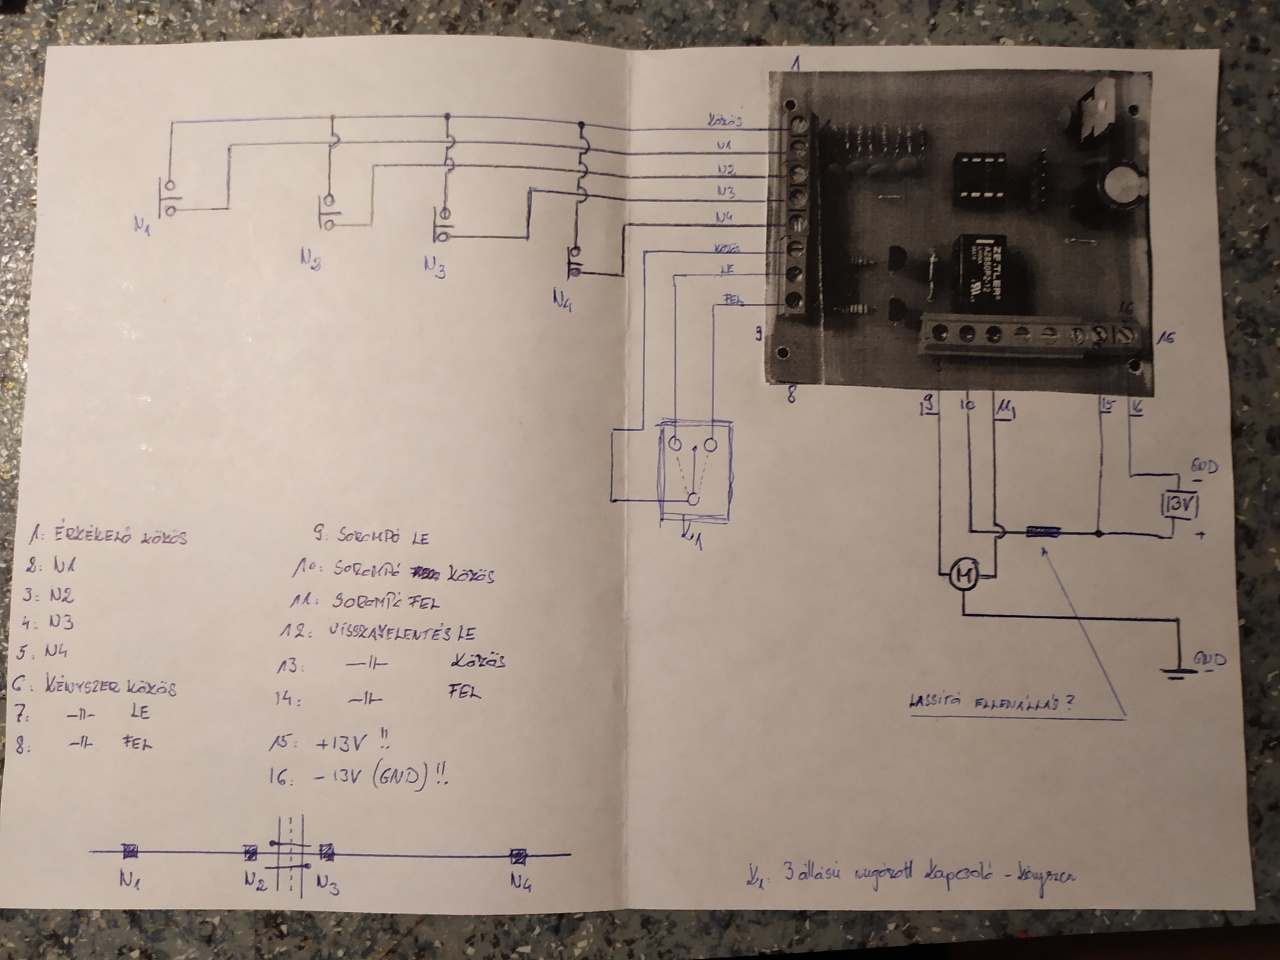 1
KÖZÖS
N1
N2
N3
N4
KÖZÖS
LE
FEL
9
8
ZETTLER
AZ850P2-12
16
16
9
10
11
15
16
GND
13V
+
M
GND
N1
N2
N3
N4
K1
LASSÍTÓ ELLENÁLLÁS?
1: ÉRZÉKELŐ KÖZÖS
2: N1
3: N2
4: N3
5: N4
6: KÉNYSZER KÖZÖS
7: -||- LE
8: -||- FEL
9: SOROMPÓ LE
10: SOROMPÓ KÖZÖS
11: SOROMPÓ FEL
12: VISSZAJELENTÉS LE
13: -||- KÖZÖS
14: -||- FEL
15: +13V !!
16: -13V (GND) !!
N1 N2 N3 N4
K1: 3 állású rugózott kapcsoló - kényszer